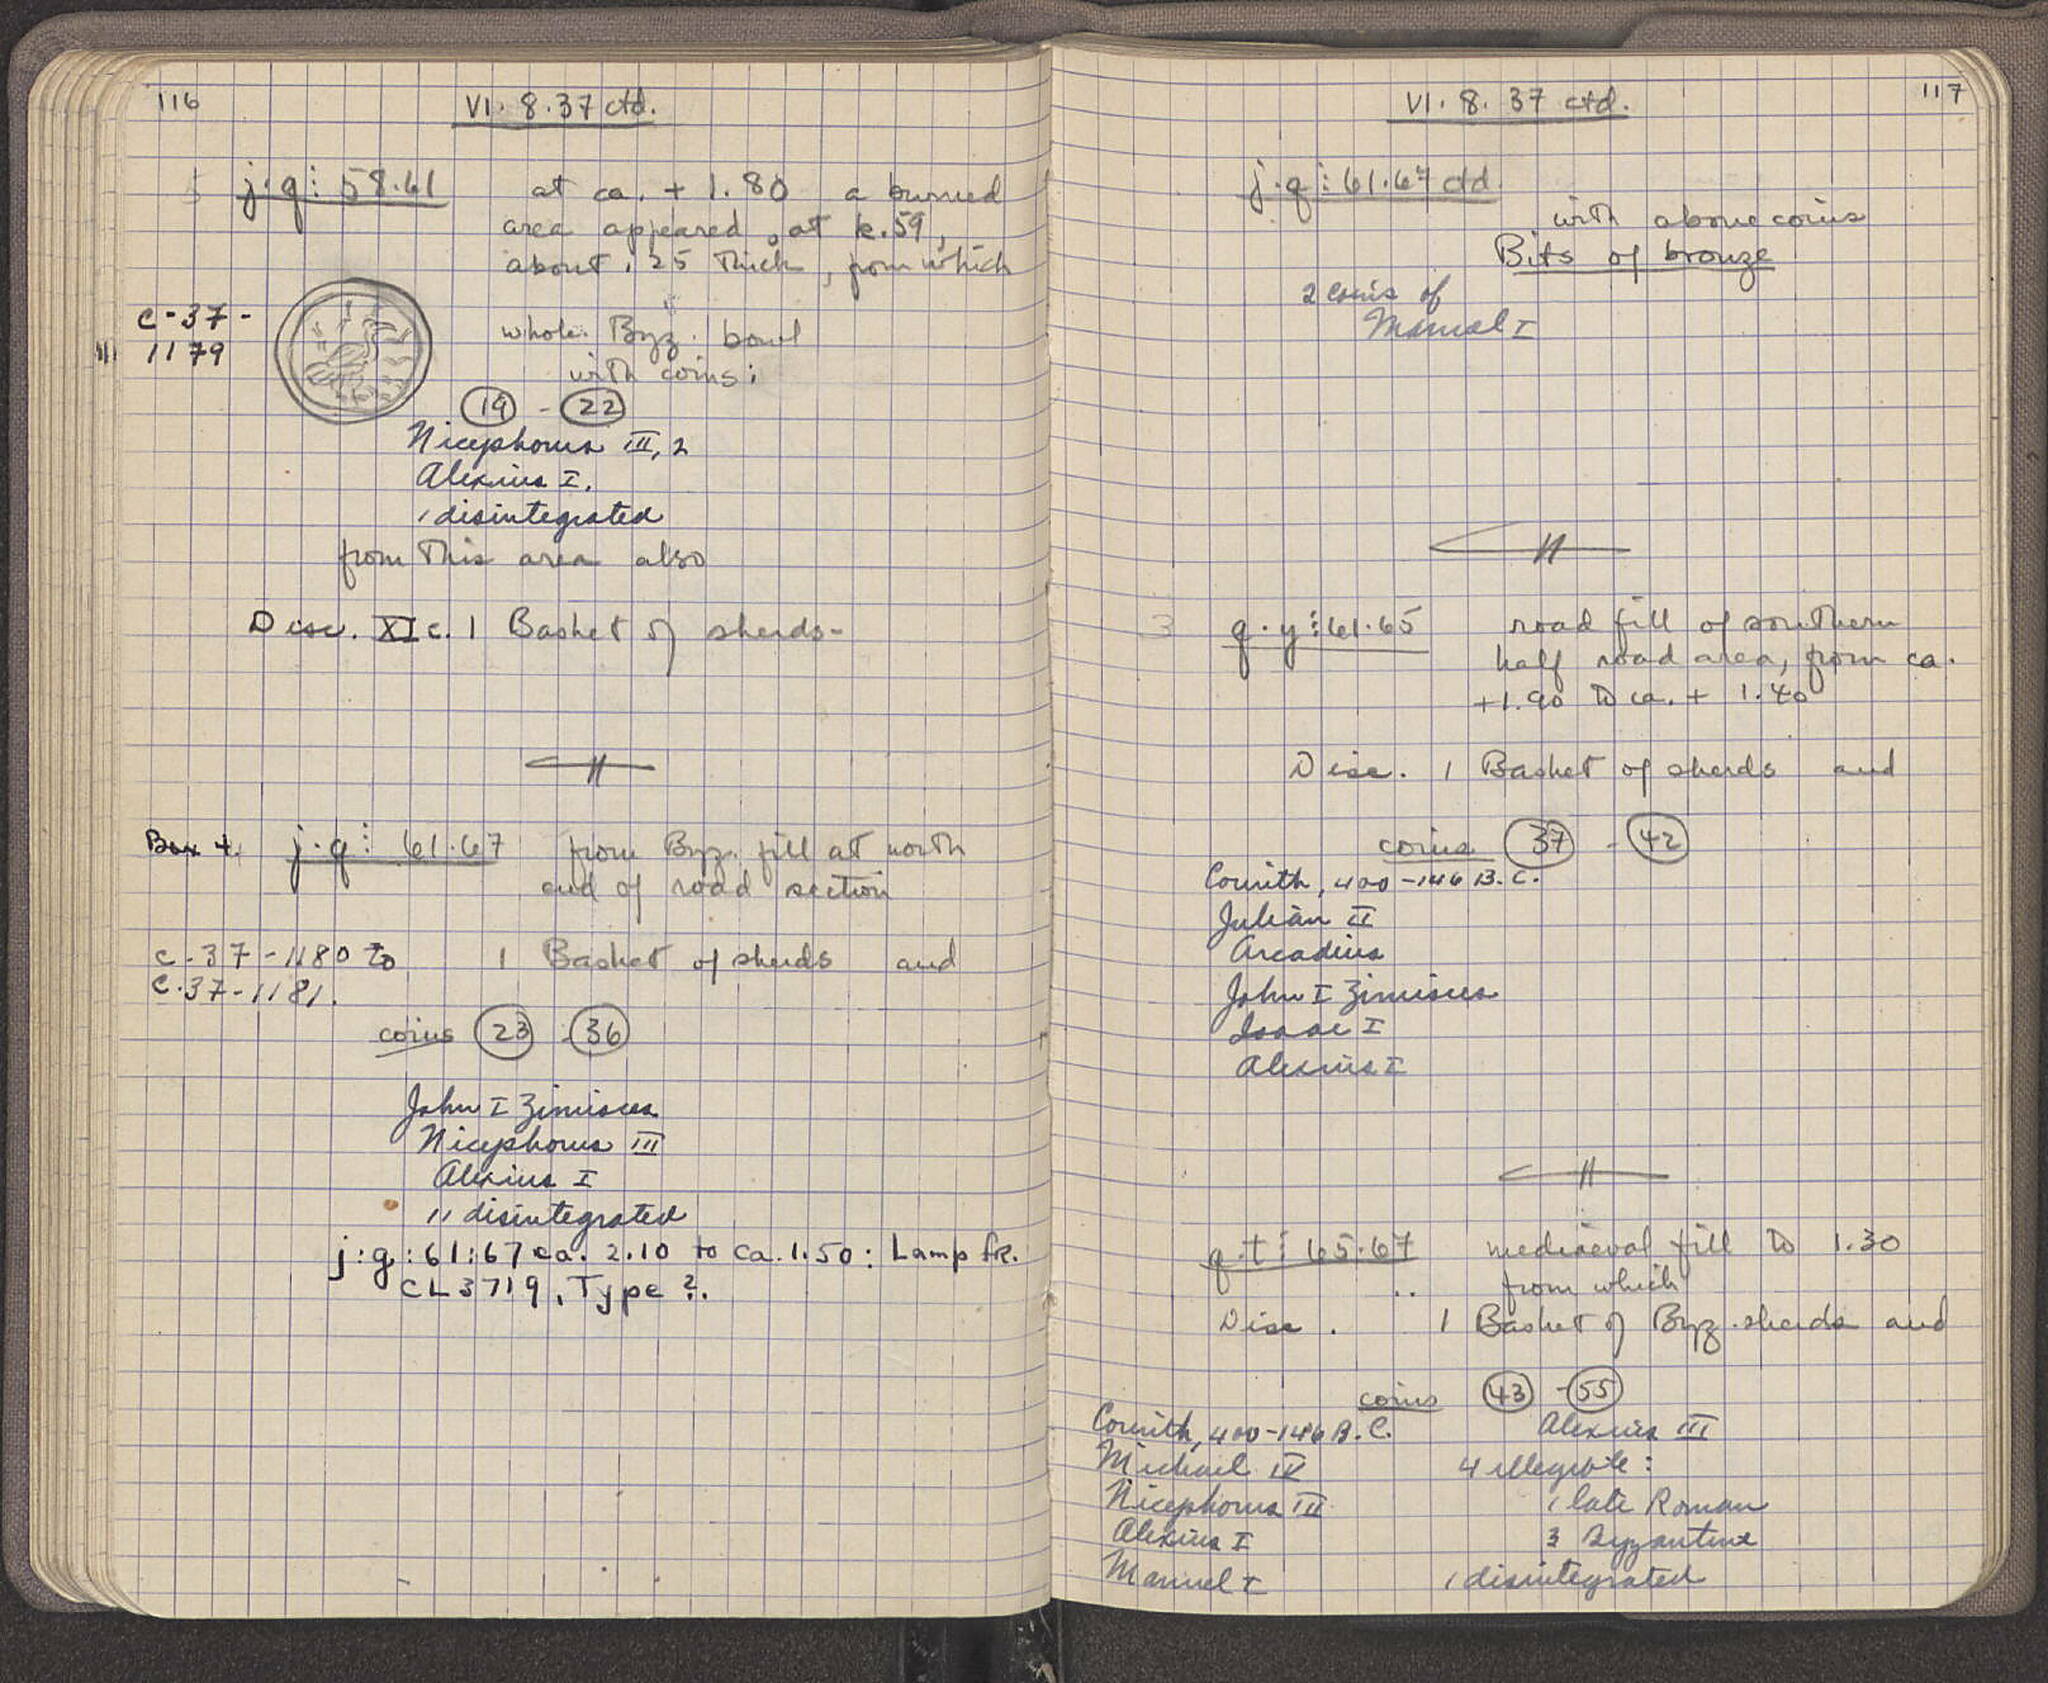 116
VI. 8.37 ctd.
j.q⋮ 58.61 at ca. + 1.80 a burned
area appeared, at k.59,
about .25 thick, from which
C-37-
1179
whole Byz. bowl
with coins:
19 - 22
Nicephorus III, 2
Alexius I.
1 disintegrated
from this area also
Disc. XI c. 1 Basket of sherds-
Box 4. j.q⋮ 61.67 from Byz. fill at north
end of road section
C-37-1180 to 1 Basket of sherds and
C.37-1181.
coins 23 - 36
John I Zimisces
Nicephorus III
Alexius I
11 disintegrated
j:g:61:67 ca. 2.10 to ca.1.50: Lamp fr.
CL3719, Type ?.
117
VI. 8. 37 ctd.
j.q⋮61.67 ctd.
with above coins
Bits of bronze
2 coins of
Manuel I
3 q.y⋮61.65 road fill of southern
half road area, from ca.
+1.90 to ca. + 1.40
Disc. 1 Basket of sherds and
coins 37 - 42
Corinth, 400-146 B.C.
Julian II
Arcadius
John I Zimisces
Isaac I
Alexius I
q.t⋮65.67 mediaeval fill to 1.30
from which
Disc. 1 Basket of Byz. sherds and
coins 43 - 55
Corinth, 400-146 B.C.
Michael IV
Nicephorus III
Alexius I
Manuel I
Alexius III
4 illegible:
1 late Roman
3 Byzantine
1 disintegrated